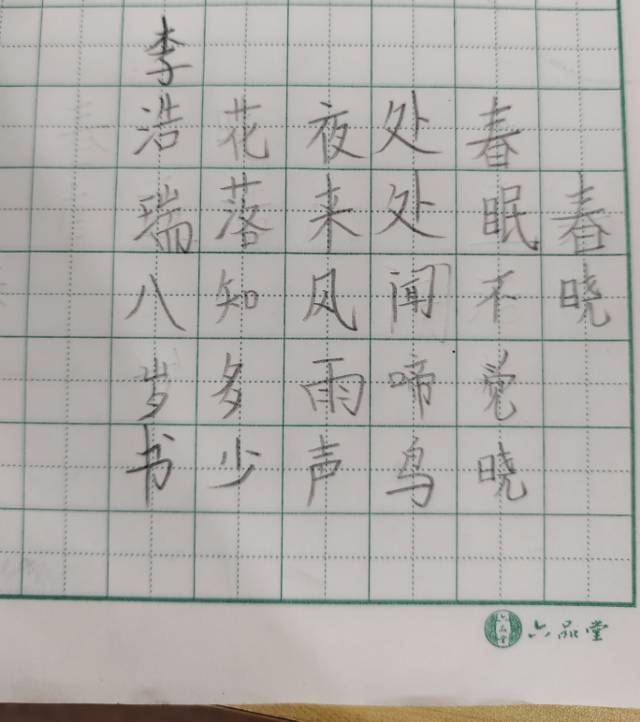 春晓
春眠不觉晓
处处闻啼鸟
夜来风雨声
花落知多少
李浩瑞八岁书
六品堂